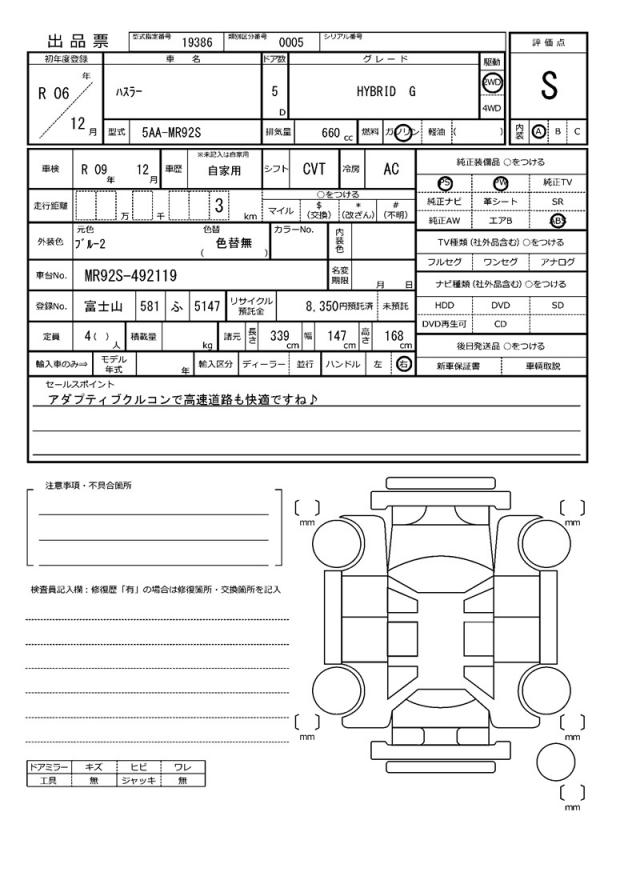 出品票 型式指定番号 19386 類別区分番号 0005 シリアル番号
評価点
初年度登録 車名 ドア数 グレード 駆動
R 06 年 12 月 ﾊｽﾗｰ 5 D HYBRID G 2WD 4WD
S
型式 5AA-MR92S 排気量 660 cc 燃料 ガソリン 軽油 ( )
内装 A B C
車検 R 09 年 12 月 車歴 ※未記入は自家用 自家用 シフト CVT 冷房 AC
純正装備品 ○をつける
PS PW 純正TV
純正ナビ 革シート SR
純正AW エアB ABS
走行距離 万 千 3 km
○をつける
マイル $(交換) *(改ざん) #(不明)
TV種類(社外品含む) ○をつける
フルセグ ワンセグ アナログ
外装色 元色 ﾌﾞﾙｰ2 色替 色替無 ( ) カラーNo. 内装色
ナビ種類(社外品含む) ○をつける
HDD DVD SD
DVD再生可 CD
車台No. MR92S-492119 名変期限 月 日
登録No. 富士山 581 ふ 5147 リサイクル預託金 8,350円預託済 未預託
定員 4( ) 人 積載量 kg 諸元 長さ 339 cm 幅 147 cm 高さ 168 cm
後日発送品 ○をつける
新車保証書 車輌取説
輸入車のみ⇒ モデル年式 年 輸入区分 ディーラー 並行 ハンドル 左 右
セールスポイント
アダプティブクルコンで高速道路も快適ですね♪
注意事項・不具合箇所
検査員記入欄：修復歴「有」の場合は修復箇所・交換箇所を記入
mm
mm
mm
mm
mm
ドアミラー キズ ヒビ ワレ
工具 無 ジャッキ 無